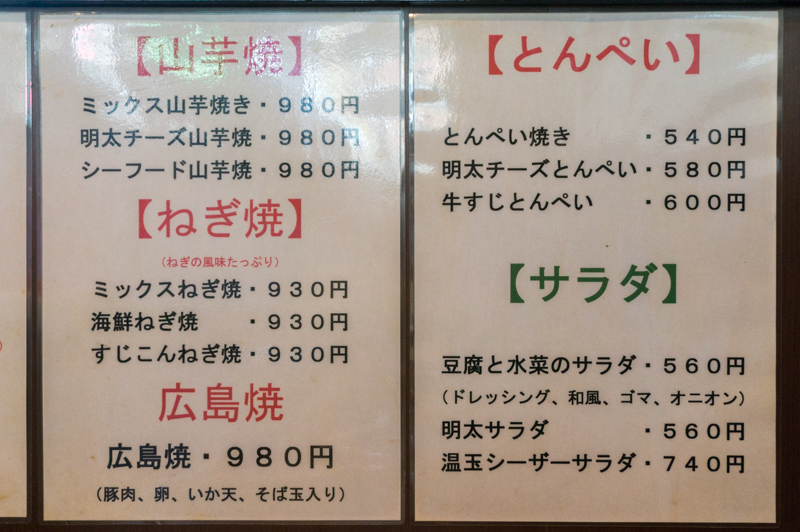 【山芋焼】
ミックス山芋焼き・９８０円
明太チーズ山芋焼・９８０円
シーフード山芋焼・９８０円
【ねぎ焼】
（ねぎの風味たっぷり）
ミックスねぎ焼・９３０円
海鮮ねぎ焼　　・９３０円
すじこんねぎ焼・９３０円
広島焼
広島焼・９８０円
（豚肉、卵、いか天、そば玉入り）
【とんぺい】
とんぺい焼き　　　・５４０円
明太チーズとんぺい・５８０円
牛すじとんぺい　　・６００円
【サラダ】
豆腐と水菜のサラダ・５６０円
（ドレッシング、和風、ゴマ、オニオン）
明太サラダ　　　　・５６０円
温玉シーザーサラダ・７４０円